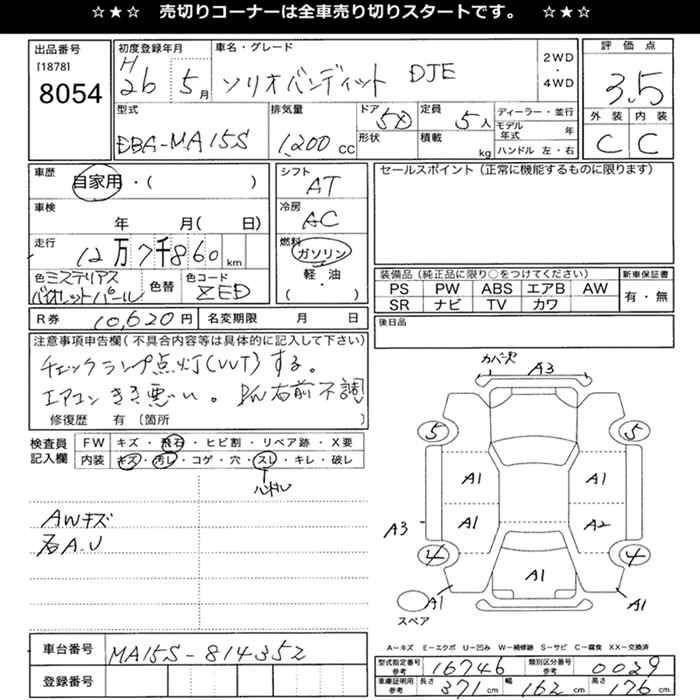 ☆★☆ 売切りコーナーは全車売り切りスタートです。 ☆★☆
出品番号
[1878]
8054
初度登録年月
H
26 5月
車名・グレード
ソリオバンディット DJE
2WD
・
4WD
評価点
3.5
外装 内装
C C
型式
DBA-MA15S
排気量
1,200 cc
ドア
5D
形状
定員
5人
積載
kg
ディーラー・並行
モデル年式 年
ハンドル 左・右
車歴
自家用・( )
車検
年 月( 日)
走行
12万7千860 km
色 ミステリアス
バイオレットパール
色替
色コード
ZED
シフト
AT
冷房
AC
燃料
ガソリン
軽・油
( ・ )
セールスポイント(正常に機能するものに限ります)
装備品(純正品に限り○をつけてください)
PS PW ABS エアB AW
SR ナビ TV カワ
新車保証書
有・無
R券 10,620円
名変期限 月 日
後日品
注意事項申告欄(不具合内容等は具体的に記入して下さい)
チェックランプ点灯(VVT)する。
エアコンきき悪い。P/W右前不調
修復歴 有 [箇所 ]
検査員
記入欄
FW キズ・飛石・ヒビ割・リペア跡・X要
内装 キズ・汚レ・コゲ・穴・スレ・キレ・破レ
ハンドル
AWキズ
石A.U
カバーズ
A3
5 5
A1 A1
A3 A1 A2
4 4
A1
A1 A1
スペア
A=キズ E=エクボ U=凹み W=補修跡 S=サビ C=腐食 XX=交換済
車台番号 MA15S-814352
登録番号
型式指定番号 参考 16746
類別区分番号 参考 0029
車庫証明用 参考 長さ 371cm 幅 162cm 高さ 176cm